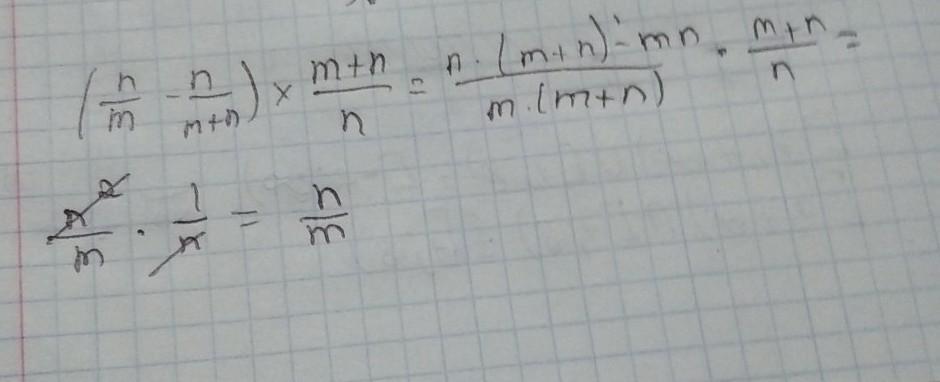 (n/m - n/(m+n)) × (m+n)/n = (n·(m+n) - mn)/(m·(m+n)) · (m+n)/n =
n²/m · 1/n = n/m